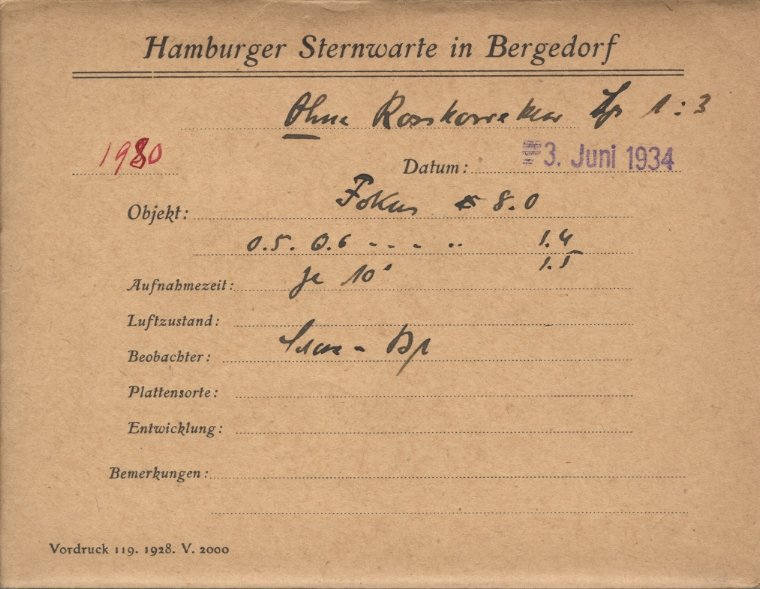 Hamburger Sternwarte in Bergedorf
Ohne 1:3
1980
Datum: 3. Juni 1934
Objekt: Fokus 8.0
0.5. 0.6 - - - .. 1.4
1.5
Aufnahmezeit: je 10'
Luftzustand:
Beobachter:
Plattensorte:
Entwicklung:
Bemerkungen:
Vordruck 119. 1928. V. 2000